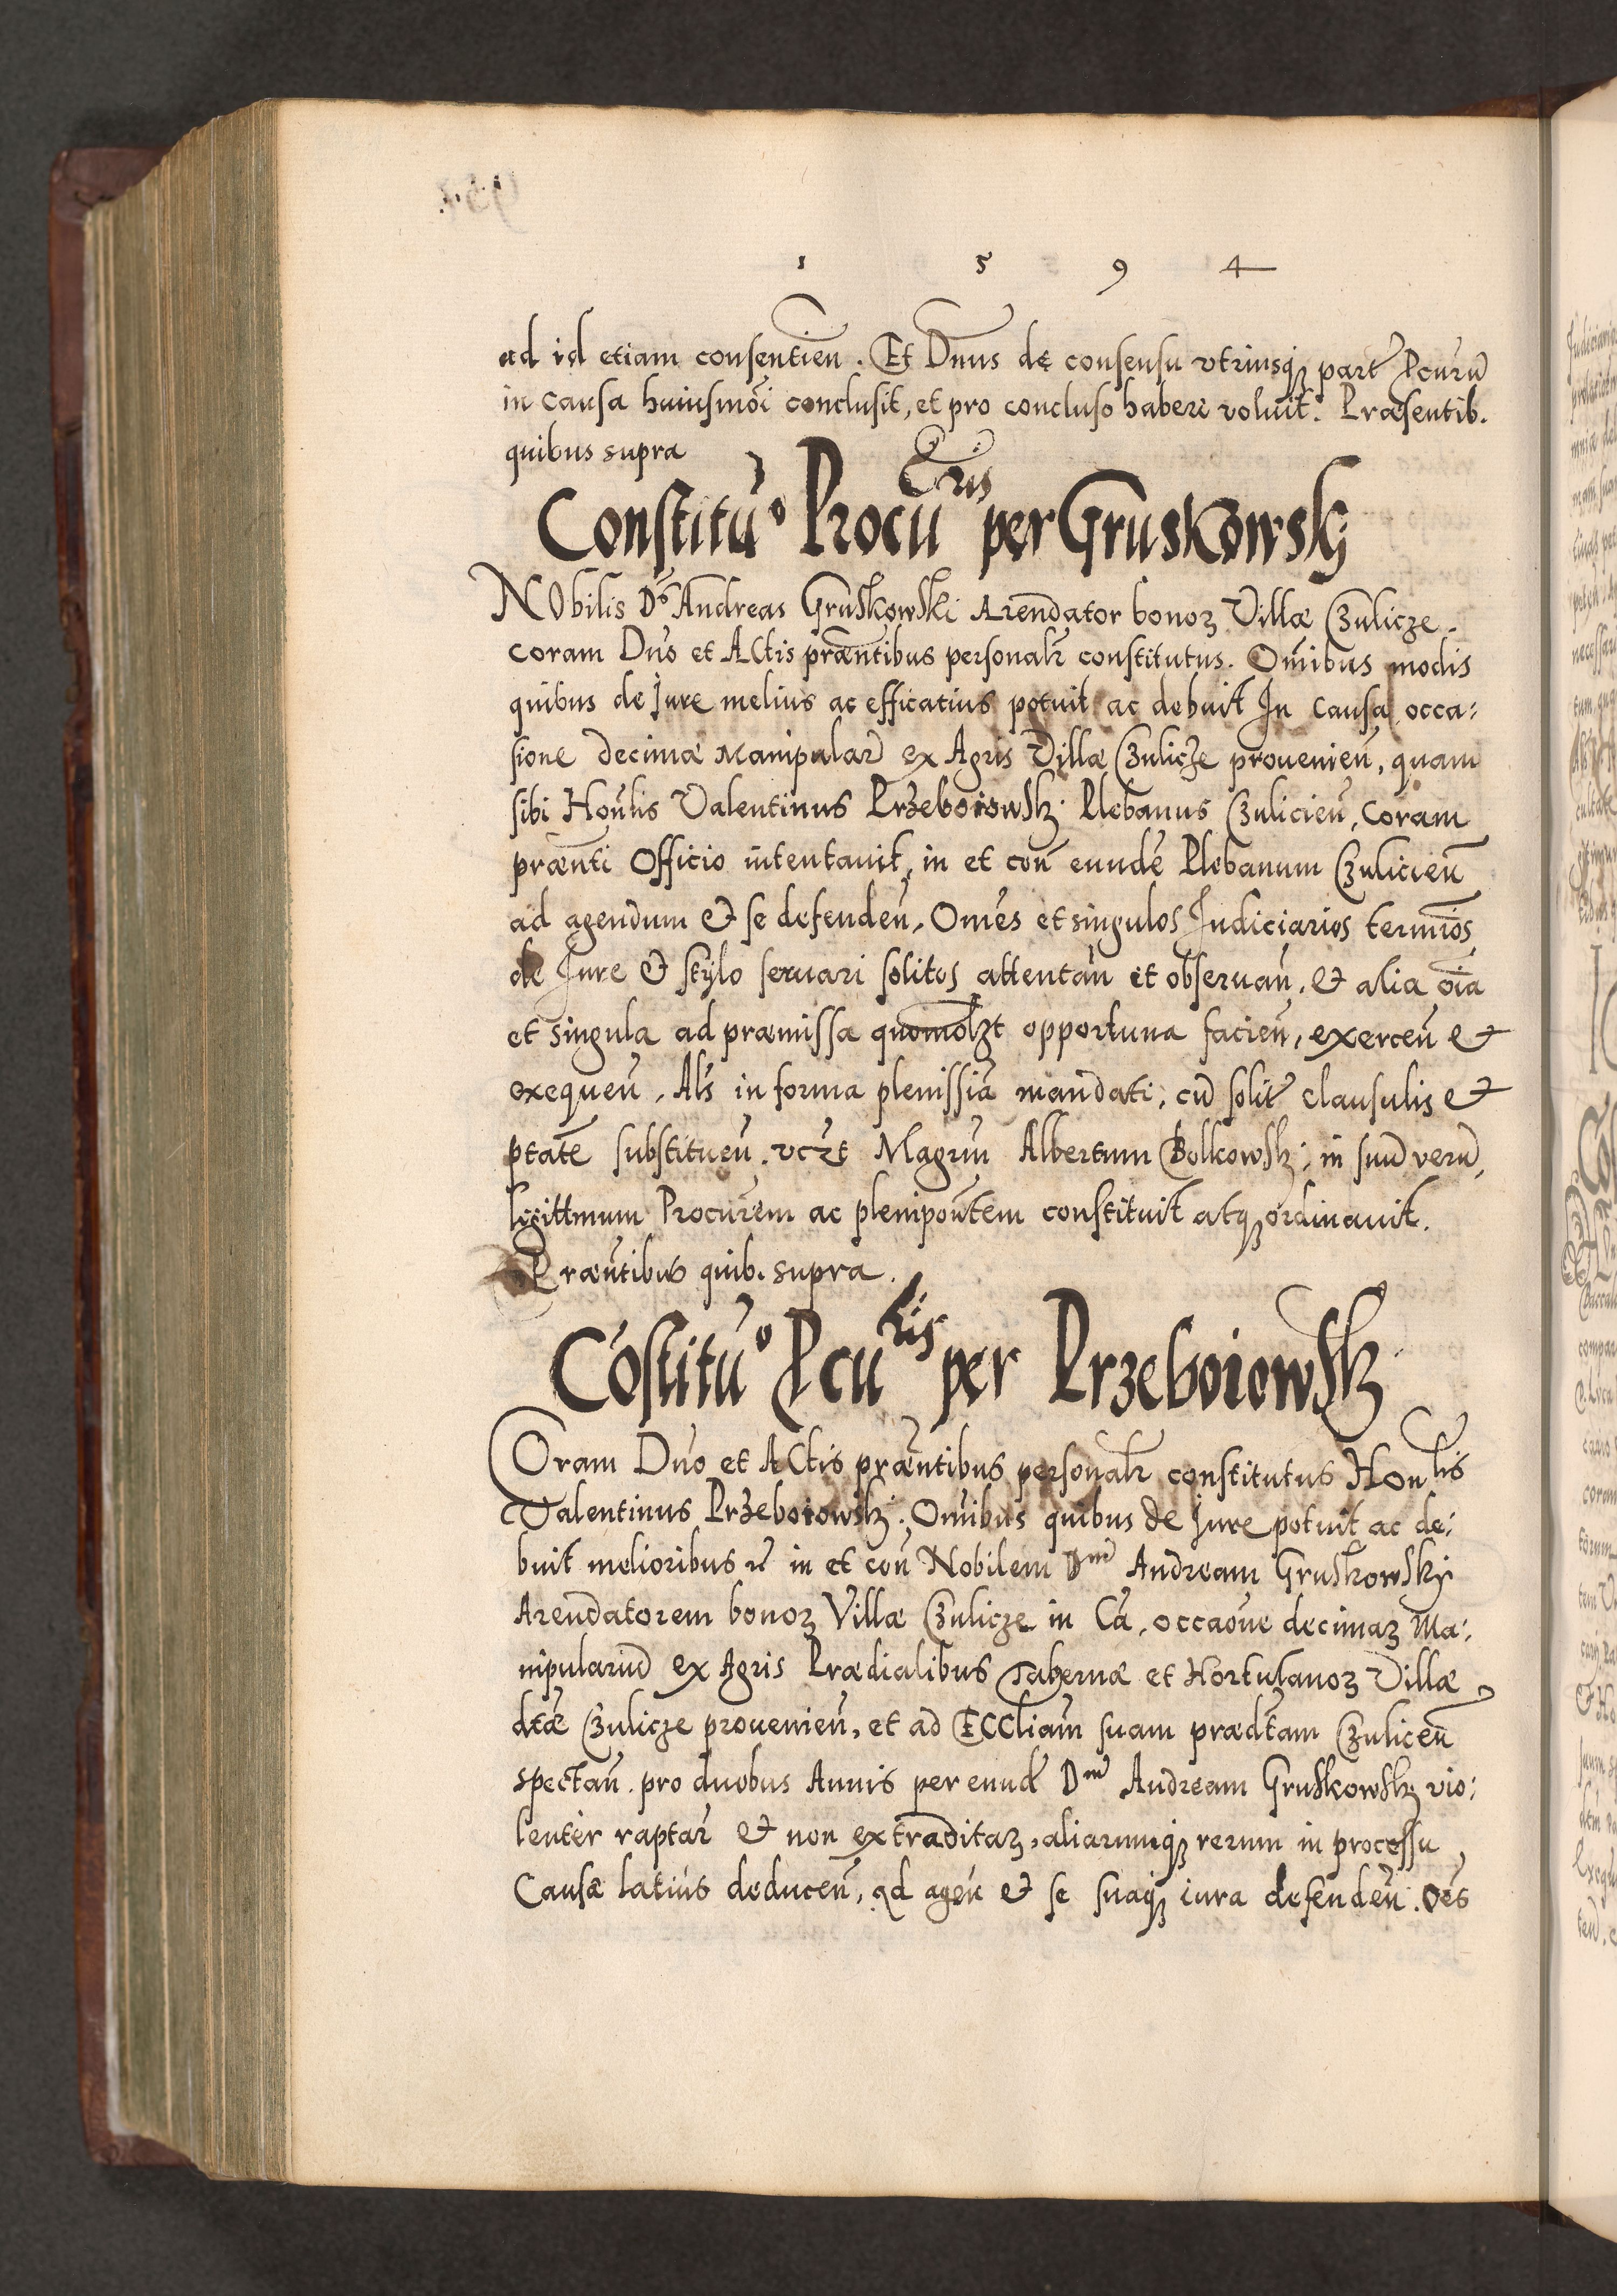 1 5 9 4
ad id etiam consentien̄. Et Dnus de consensu vtriusq₃ part Pcurū
in causa huiusmōi conclusit, et pro concluso habere voluit. Præsentib.
quibus supra
Constitūo Procūris per Gruskowskj
NObilis Ds Andreas Gruskowski Arendator bonoꝝ Villæ Czulicze.
coram Dno et Actis præn̄tibus personalr constitutus. Om̄ibus modis
quibus de Jure melius ac efficatius potuit ac debuit In causa occa:
sione decimæ Manipular ex Agris Villæ Czulicze prouenien̄, quam
sibi Hon̄lis Valentinus Przeboiowsk: Plebanus Czulicien̄, coram
præn̄ti Officio intentauit, in et con̄ eundē Plebanum Czulicien̄
ad agendum & se defenden̄, Om̄es et singulos Judiciarios term̄ios
de Jure & stylo seruari solitos attentan̄ et obseruan̄. & alia oīa
et singula ad præmissa quomolꝫt opportuna facien̄, exercen̄ &
exequen̄. Als in forma plenissīa mandati, cū solit clausulis &
ptāte substituen̄. vcꝫt Magrum Albertum Bolkowsk: in suū verū,
legittmum Procurem ac plenipon̄tem constituit atq₃ ordinauit.
Præn̄tibus quib. supra.
Cōstitūo Pcūris per Przeboiowsk
Coram Dno et Actis præn̄tibus personalr constitutus Honlis
Valentinus Przeboiowsk: Om̄ibus quibus de Jure potuit ac de:
buit melioribus in et con̄ Nobilem Dnm Andream Gruskowskj
Arendatorem bonoꝝ Villæ Czulicze in Cā, occaōne decimaꝝ Ma:
nipulariū ex Agris Prædialibus Tabernæ et Hortulanoꝝ Villæ
dtæ Czulicze prouenien̄, et ad Eccliam suam prædtam Czulicen̄
spectan̄. pro duobus Annis per eund Dnm Andream Gruskowsk vio:
lenter raptar & non extraditaꝝ, aliarumq₃ rerum in processu
Causæ latius deducen̄, ad agen̄ & se suaq₃ iura defenden̄. Oēs